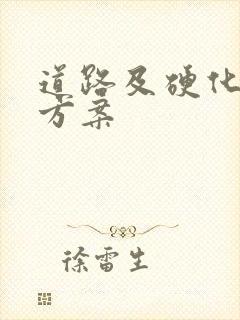 道路及硬化
方案
徐雷生